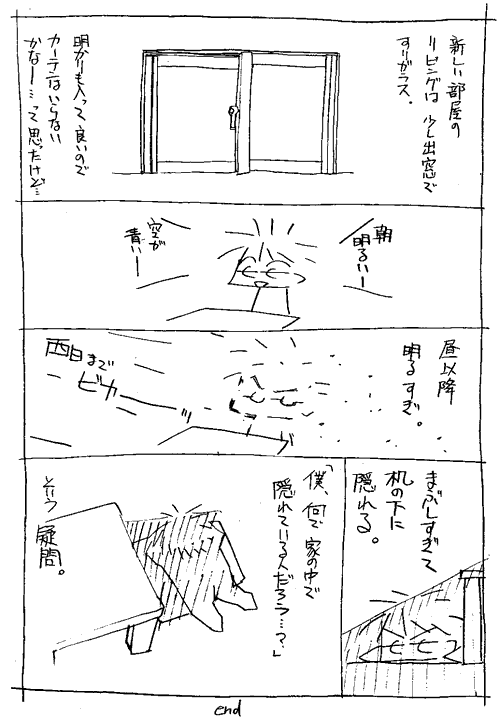 新しい部屋の
リビングは少し出窓で
すりガラス。
明かりも入って良いので
カーテンはいらない
かなー…って思ったけど…
朝
明るいー
空が
青いー
昼以降
明るすぎ。
西日まで
ビカーーッ
まぶしすぎて
机の下に
隠れる。
「僕、何で家の中で
隠れているんだろう…?」
そーゆう
疑問。
end